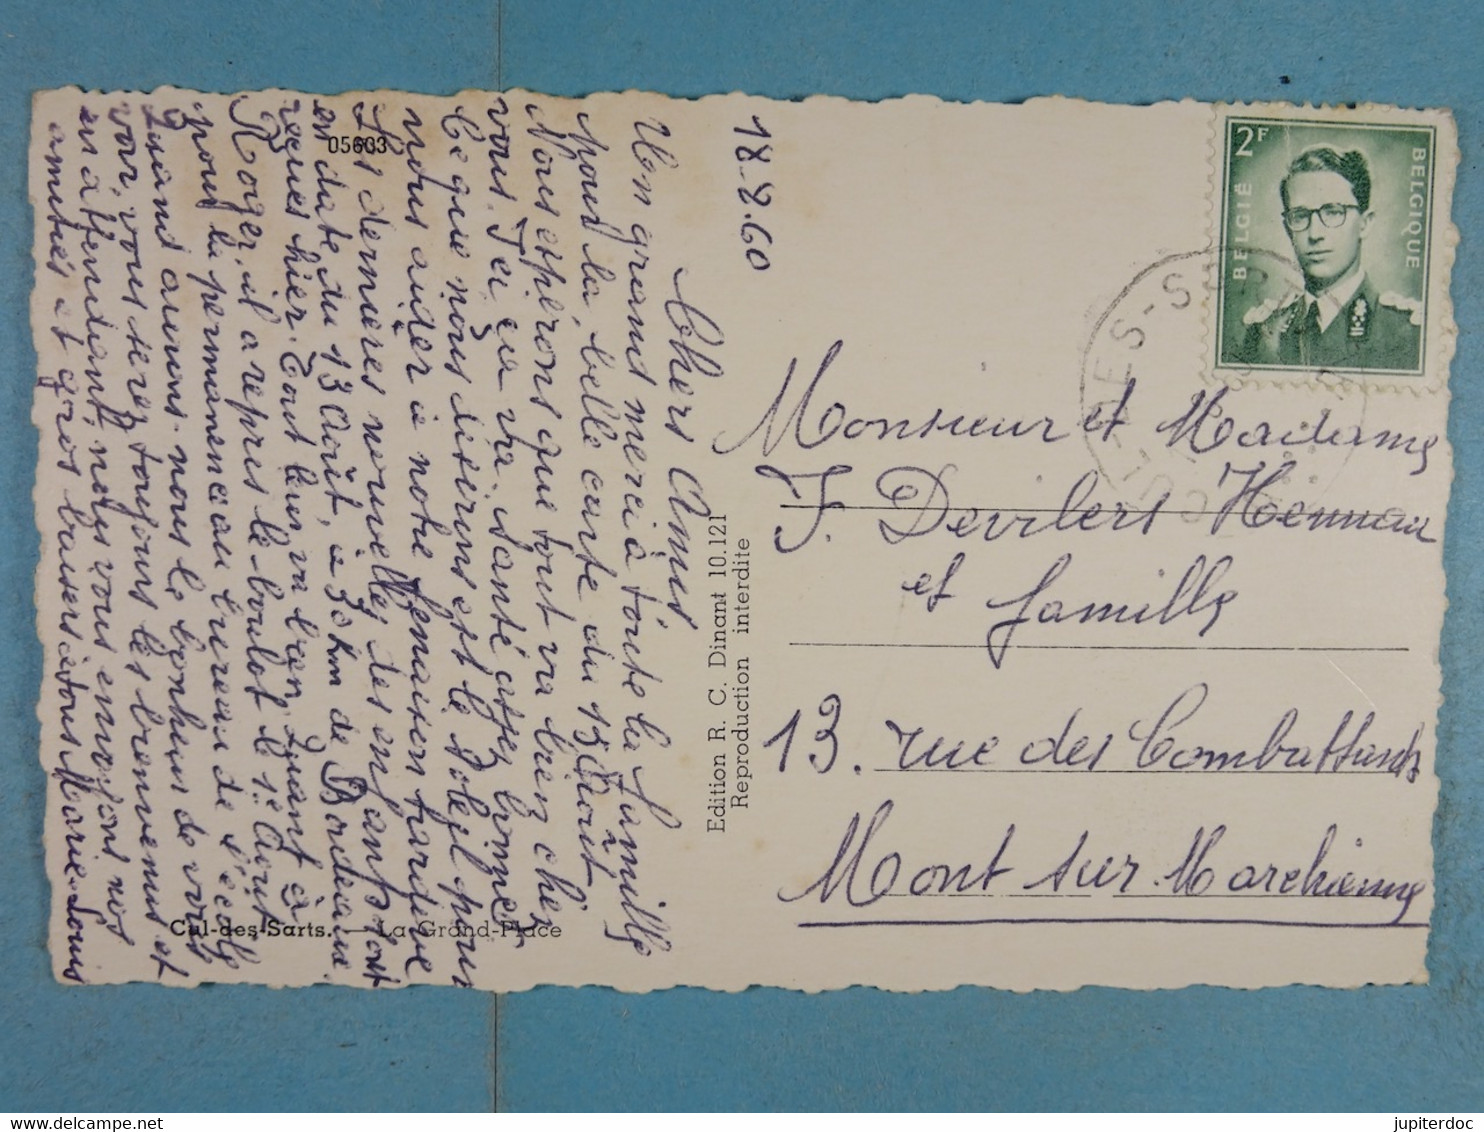 18-8.60
Chers Amis,
Un grand merci à toute la famille
pour la belle carte du 15 Août
Nous espérons que tout va bien chez
vous. Ici, ça va. Santé assez bonne.
Ce que nous désirons est le soleil pour
nous aider à notre fenaison tardive
Les dernières nouvelles des enfants sont
en date du 13 Août, à 30 km de Bordeaux
reçues hier. Tout leur va bien. Quant à
Roger, il a repris le boulot le 1er Août
pour la permanence au bureau de l'école
Quand aurons-nous le bonheur de vous
voir, vous serez toujours les bienvenus et
en attendant, nous vous envoyons nos
amitiés et gros baisers à tous Marie-Louis
05603
Cul-des-Sarts. — La Grand-Place
Edition R. C. Dinant 10.121
Reproduction interdite
2F
BELGIË
BELGIQUE
CUL-DES-SARTS
Monsieur et Madame
J. Devilers Hennau
et famille
13. rue des Combattants
Mont sur Marchienne
jupiterdoc